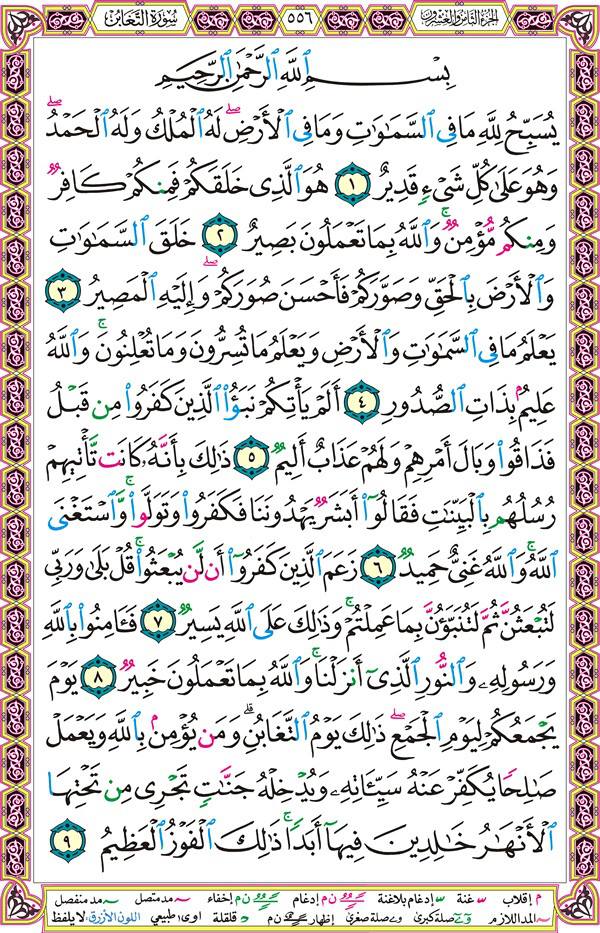 الجزء الثامن والعشرون
٥٥٦
سورة التغابن
بِسْمِ ٱللَّهِ ٱلرَّحْمَٰنِ ٱلرَّحِيمِ
يُسَبِّحُ لِلَّهِ مَا فِى ٱلسَّمَٰوَٰتِ وَمَا فِى ٱلْأَرْضِ ۖ لَهُ ٱلْمُلْكُ وَلَهُ ٱلْحَمْدُ ۖ
وَهُوَ عَلَىٰ كُلِّ شَىْءٍ قَدِيرٌ ١ هُوَ ٱلَّذِى خَلَقَكُمْ فَمِنكُمْ كَافِرٌ
وَمِنكُم مُّؤْمِنٌ ۚ وَٱللَّهُ بِمَا تَعْمَلُونَ بَصِيرٌ ٢ خَلَقَ ٱلسَّمَٰوَٰتِ
وَٱلْأَرْضَ بِٱلْحَقِّ وَصَوَّرَكُمْ فَأَحْسَنَ صُوَرَكُمْ ۖ وَإِلَيْهِ ٱلْمَصِيرُ ٣
يَعْلَمُ مَا فِى ٱلسَّمَٰوَٰتِ وَٱلْأَرْضِ وَيَعْلَمُ مَا تُسِرُّونَ وَمَا تُعْلِنُونَ ۚ وَٱللَّهُ
عَلِيمٌۢ بِذَاتِ ٱلصُّدُورِ ٤ أَلَمْ يَأْتِكُمْ نَبَؤُا۟ ٱلَّذِينَ كَفَرُوا۟ مِن قَبْلُ
فَذَاقُوا۟ وَبَالَ أَمْرِهِمْ وَلَهُمْ عَذَابٌ أَلِيمٌ ٥ ذَٰلِكَ بِأَنَّهُۥ كَانَت تَّأْتِيهِمْ
رُسُلُهُم بِٱلْبَيِّنَٰتِ فَقَالُوٓا۟ أَبَشَرٌ يَهْدُونَنَا فَكَفَرُوا۟ وَتَوَلَّوا۟ ۚ وَّٱسْتَغْنَى
ٱللَّهُ ۚ وَٱللَّهُ غَنِىٌّ حَمِيدٌ ٦ زَعَمَ ٱلَّذِينَ كَفَرُوٓا۟ أَن لَّن يُبْعَثُوا۟ ۚ قُلْ بَلَىٰ وَرَبِّى
لَتُبْعَثُنَّ ثُمَّ لَتُنَبَّؤُنَّ بِمَا عَمِلْتُمْ ۚ وَذَٰلِكَ عَلَى ٱللَّهِ يَسِيرٌ ٧ فَـَٔامِنُوا۟ بِٱللَّهِ
وَرَسُولِهِۦ وَٱلنُّورِ ٱلَّذِىٓ أَنزَلْنَا ۚ وَٱللَّهُ بِمَا تَعْمَلُونَ خَبِيرٌ ٨ يَوْمَ
يَجْمَعُكُمْ لِيَوْمِ ٱلْجَمْعِ ۖ ذَٰلِكَ يَوْمُ ٱلتَّغَابُنِ ۗ وَمَن يُؤْمِنۢ بِٱللَّهِ وَيَعْمَلْ
صَٰلِحًا يُكَفِّرْ عَنْهُ سَيِّـَٔاتِهِۦ وَيُدْخِلْهُ جَنَّٰتٍ تَجْرِى مِن تَحْتِهَا
ٱلْأَنْهَٰرُ خَٰلِدِينَ فِيهَآ أَبَدًا ۚ ذَٰلِكَ ٱلْفَوْزُ ٱلْعَظِيمُ ٩
م إقلاب غنة إدغام بلاغنة ن م إدغام ن م إخفاء مد متصل مد منفصل
المد اللازم صلة كبرى صلة صغرى إظهار ن م قلقلة اوى؛ طبيعي اللون الأزرق، لا يلفظ